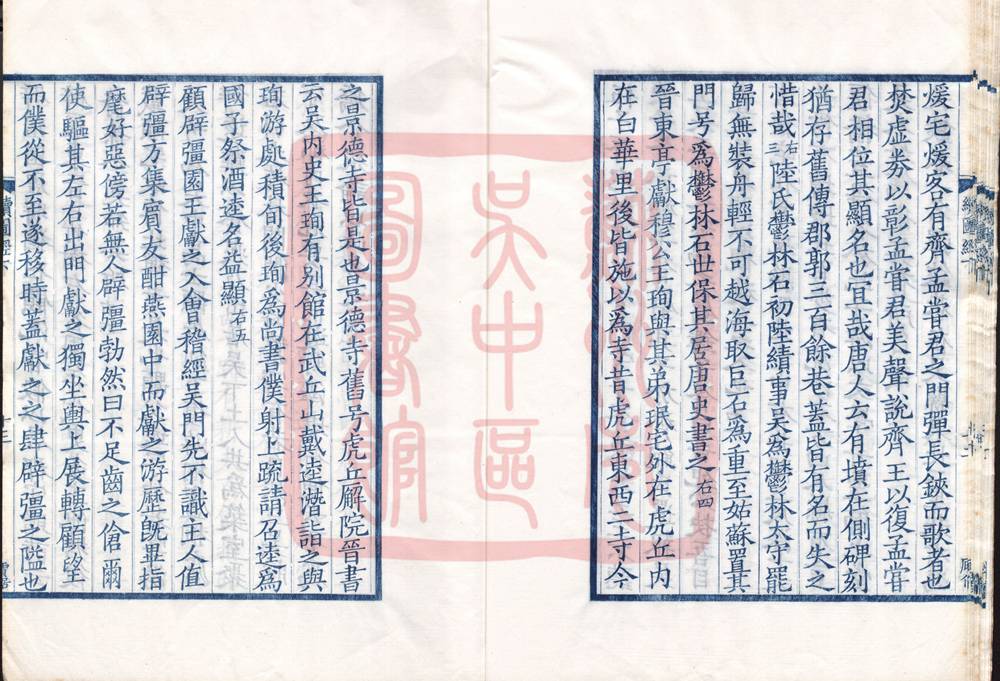 煖宅煖客有齊孟甞君之門彈長鋏而歌者也
焚虛券以彰孟甞君美聲說齊王以復孟甞
君相位其顯名也冝哉唐人云有墳在側碑刻
猶存舊傳郡郭三百餘巷蓋皆有名而失之
惜哉右三陸氏鬱林石初陸績事吳爲鬱林太守罷
歸無裝舟輕不可越海取巨石爲重至姑蘇置其
門号爲鬱林石世保其居唐史書之右四
晉東亭獻穆公王珣與其弟珉宅外在虎丘内
在白華里後皆施以爲寺昔虎丘東西二寺今
之景德寺皆是也景德寺舊号虎丘廨院晉書
云吳内史王珣有别館在武丘山戴逵潛詣之與
珣游處積旬後珣爲尚書僕射上疏請召逵爲
國子祭酒逵名益顯右五
顧辟彊園王獻之入會稽經吳門先不識主人值
辟彊方集賓友酣燕園中而獻之游歷旣畢指
麾好惡傍若無人辟彊勃然曰不足齒之傖爾
使驅其左右出門獻之獨坐輿上展轉顧望
而僕從不至遂移時蓋獻之之肆辟彊之隘也
蘇州圖書館
吳中區